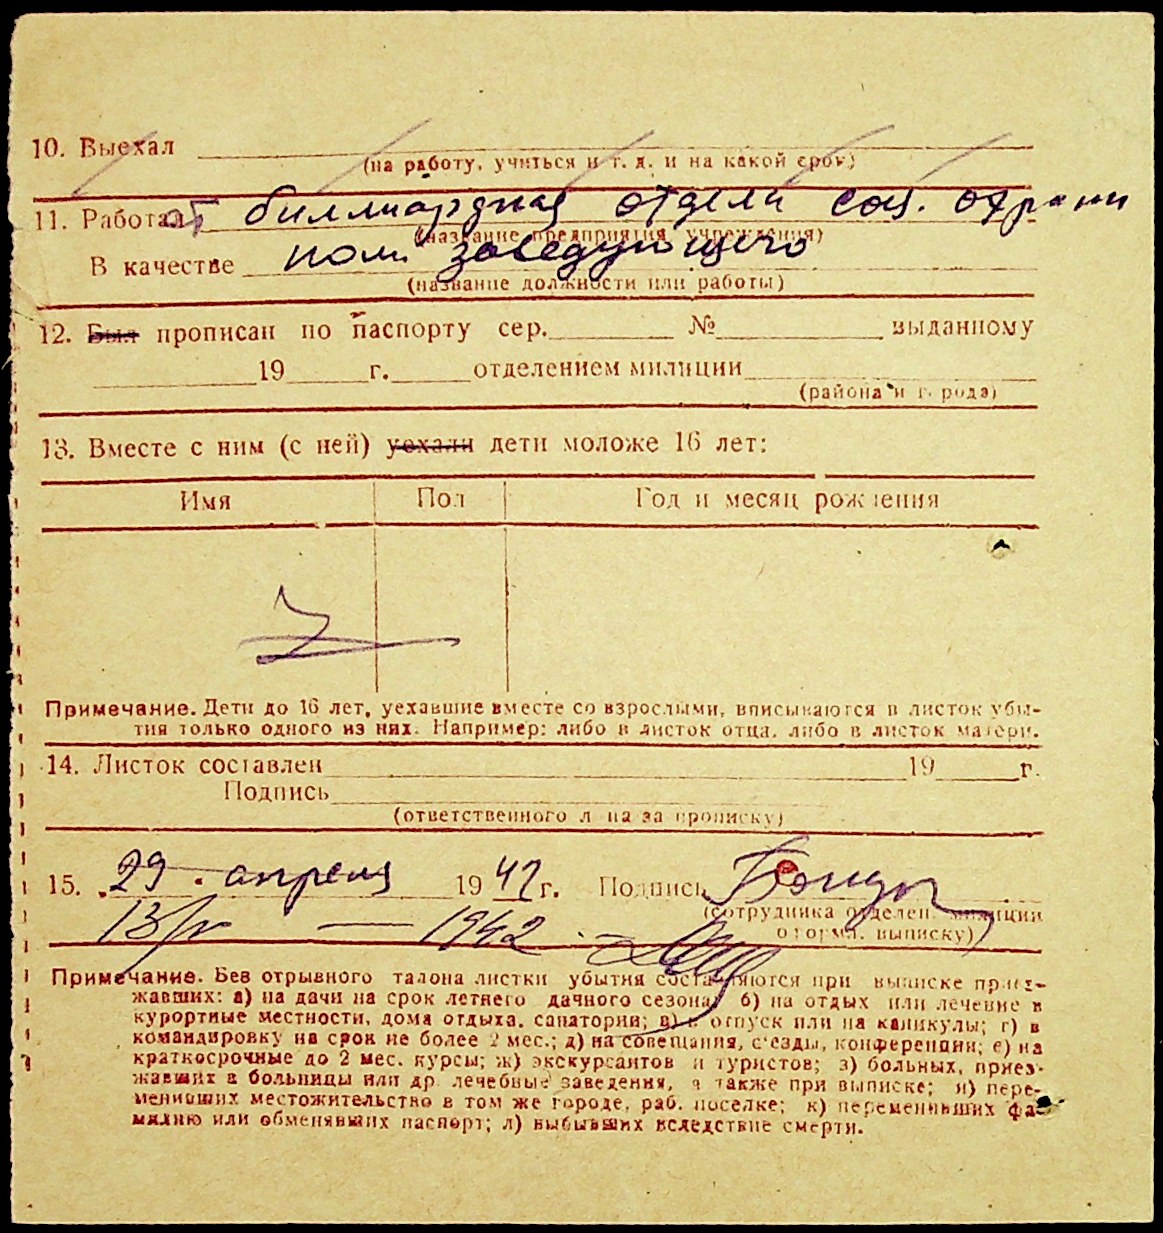 10. Выехал
(на работу, учиться и т. д. и на какой срок)
11. Работает биллиардная отдели соц. охрани
(название предприятия, учреждения)
В качестве пом. заведующего
(название должности или работы)
12. Был прописан по паспорту сер. № выданному
19 г. отделением милиции
(района и города)
13. Вместе с ним (с ней) уехали дети моложе 16 лет:
Имя Пол Год и месяц рождения
Примечание. Дети до 16 лет, уехавшие вместе со взрослыми, вписываются в листок убы-
тия только одного из них. Например: либо в листок отца, либо в листок матери.
14. Листок составлен 19 г.
Подпись
(ответственного лица за прописку)
15. 29 апреля 1942 г. Подпись
(сотрудника отделен. милиции
оформл. выписку)
13/IV — 1942
Примечание. Без отрывного талона листки убытия составляются при выписке приез-
жавших: а) на дачи на срок летнего дачного сезона; б) на отдых или лечение в
курортные местности, дома отдыха, санатории; в) в отпуск или на каникулы; г) в
командировку на срок не более 2 мес.; д) на совещания, съезды, конференции; е) на
краткосрочные до 2 мес. курсы; ж) экскурсантов и туристов; з) больных, приез-
жавших в больницы или др. лечебные заведения, а также при выписке; и) пере-
менивших местожительство в том же городе, раб. поселке; к) переменивших фа-
милию или обменявших паспорт; л) выбывших вследствие смерти.